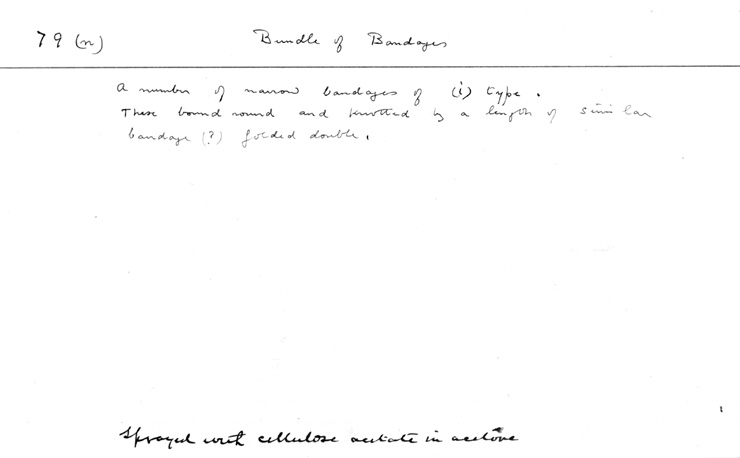 79 (n) Bundle of Bandages
A number of narrow bandages of (i) type.
These bound round and knotted by a length of similar
bandage (?) folded double.
Sprayed with cellulose acetate in acetone